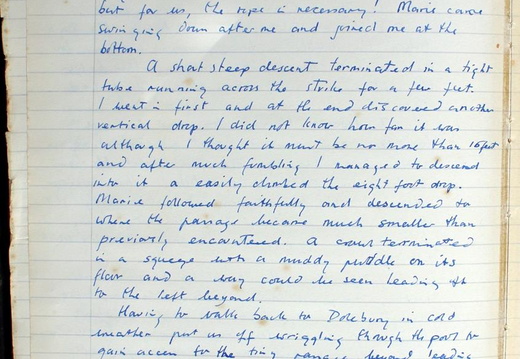 but for us, the rope is necessary! Marie came
swinging down after me and joined me at the
bottom.
A short steep descent terminated in a tight
tube running across the strike for a few feet.
I went in first and at the end discovered another
vertical drop. I did not know how far it was
although I thought it must be no more than 16 feet
and after much fumbling I managed to descend
into it a easily climbed the eight foot drop.
Marie followed faithfully and descended to
where the passage became much smaller than
previously encountered. A crawl terminated
in a squeeze with a muddy puddle on its
floor and a way could be seen leading
to the left beyond.
Having to walk back to Dolebury in cold
weather put us off wriggling through the pool to
gain access to the tiny passage beyond leading